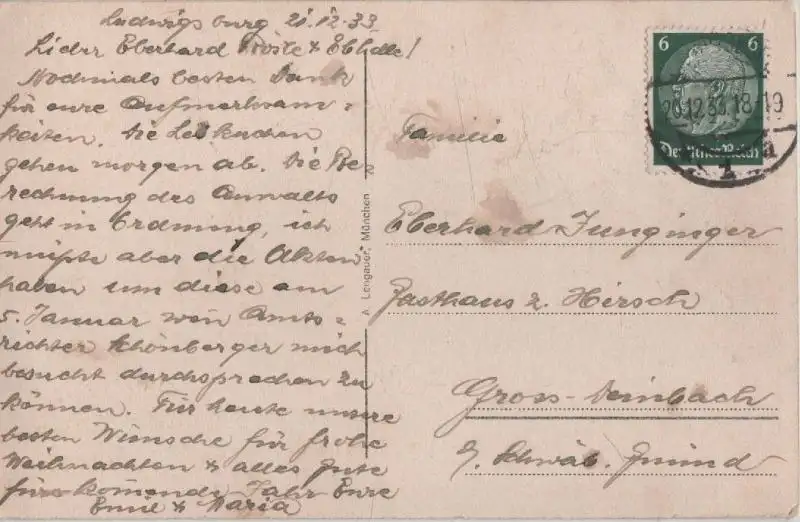 Ludwigsburg 21.12.33
Lieber Eberhard &
Nochmals besten Dank
für eure Aufmerksam-
keiten. Die Lebkuchen
gehen morgen ab. Die Be-
rechnung des Anwalts
geht in Ordnung, ich
müßte aber die Akten
haben um diese am
5. Januar wen Amts-
richter Schönberger mich
besucht durchsprechen zu
können. Für heute unsere
besten Wünsche für frohe
Weihnachten & alles Gute
fürs komende Jahr Eure
Emil & Maria
A. Lengauer, München
6 6
Deutsches Reich
12.33.18-19
Familie
Eberhard Junginger
Gasthaus z. Hirsch
Gross-Deinbach
b. Schwäb. Gmünd